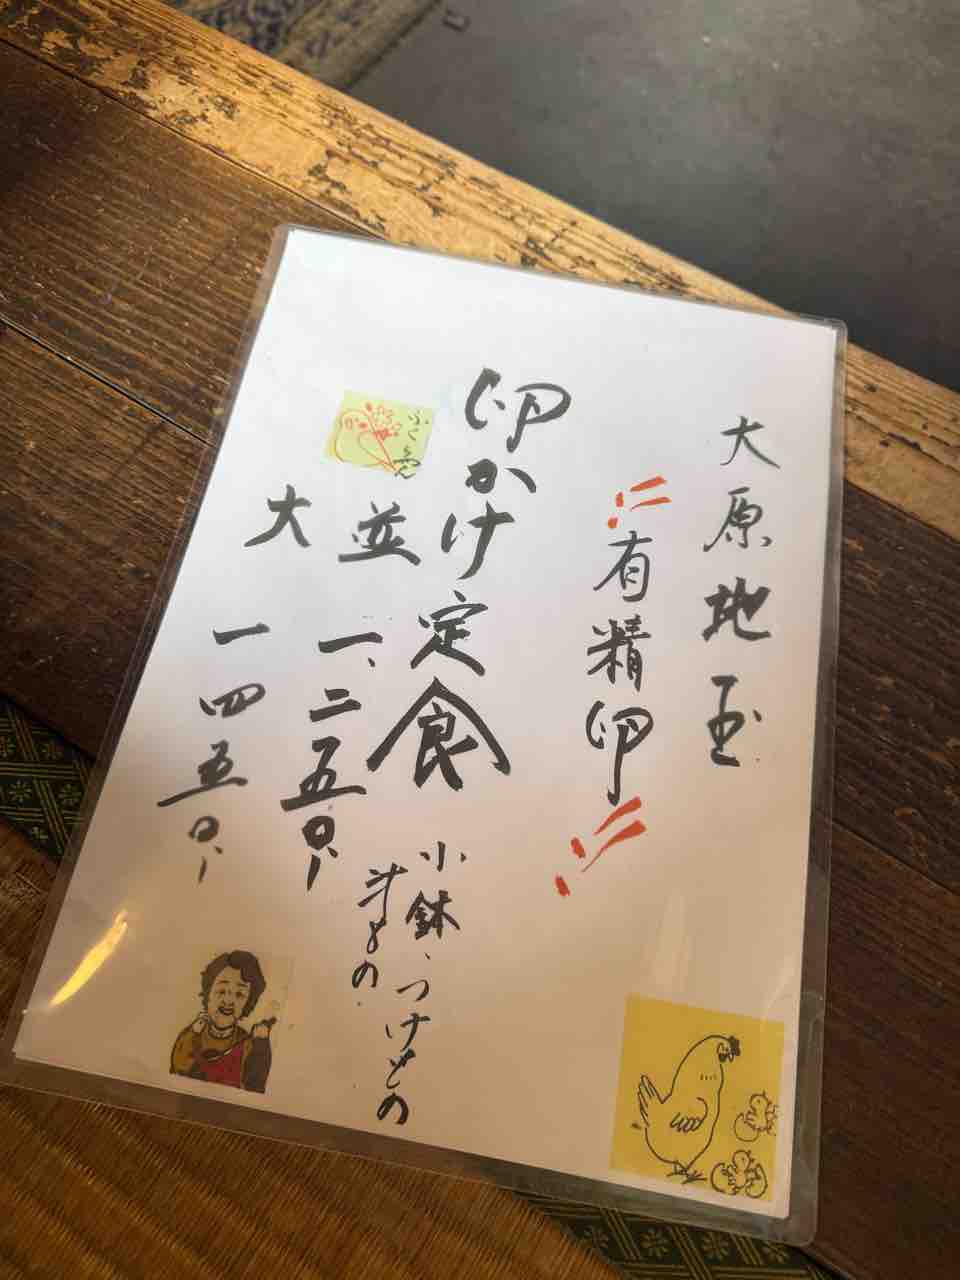 大原地玉
有精卵
卵かけ定食
小鉢、つけもの
汁もの
並 一、二五〇、
大 一四五〇、